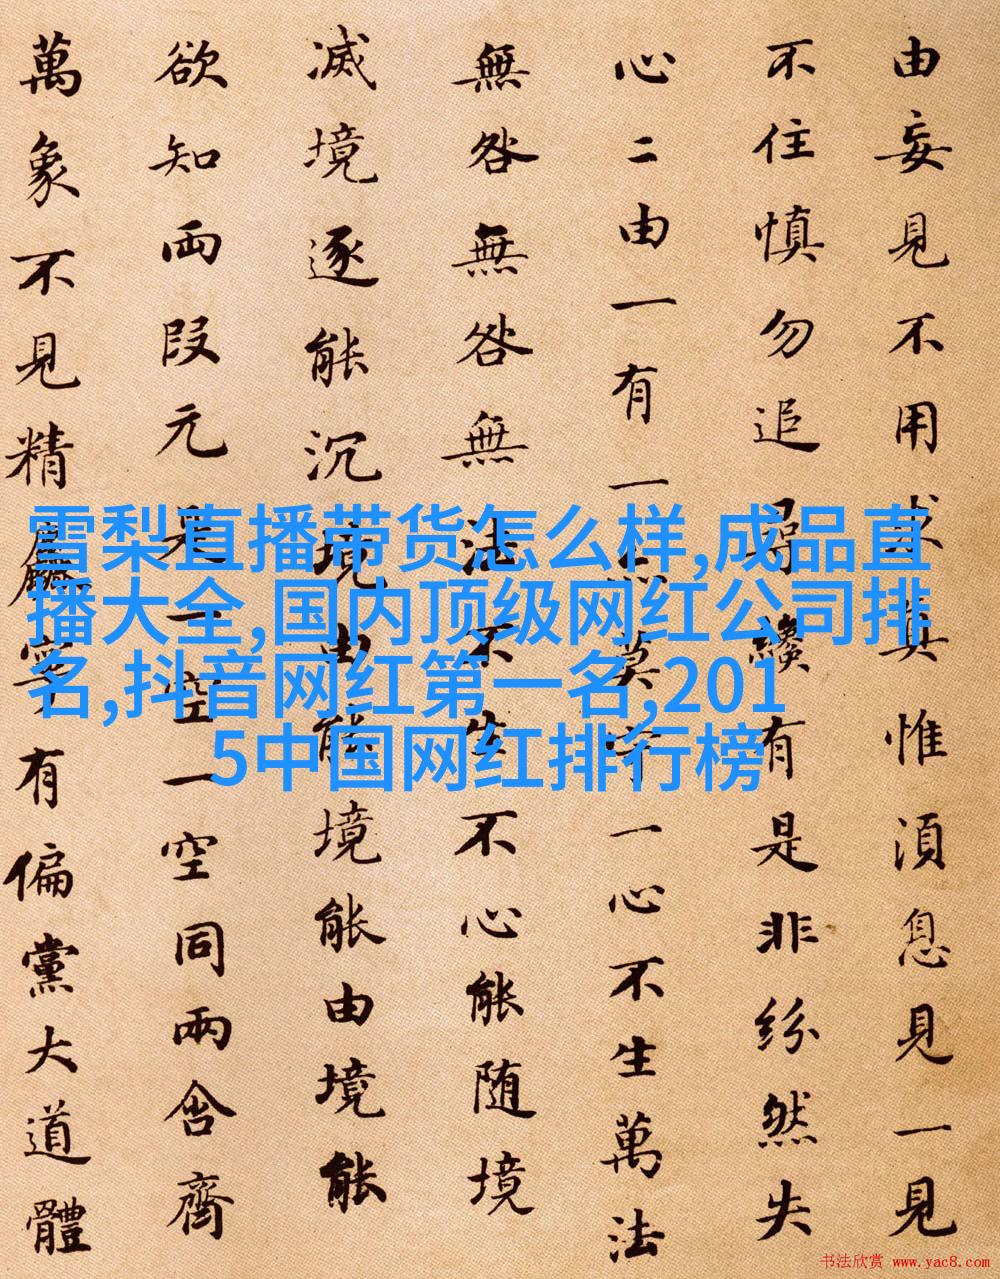 由妄見不用求真惟湏息見一見
不住慎勿追尋纔有是非紛然失
心二由一有一亦莫守一心不生萬法
無咎無咎無法不生不心能随境
滅境逐能沉境由能境能由境能
欲知両段元是一空一空同兩含齊
萬象不見精麤寧有偏黨大道體
雪梨直播带货怎么样,成品直
播大全,国内顶级网红公司排
名,抖音网红第一名,201
5中国网红排行榜
书法欣赏 www.yac8.com